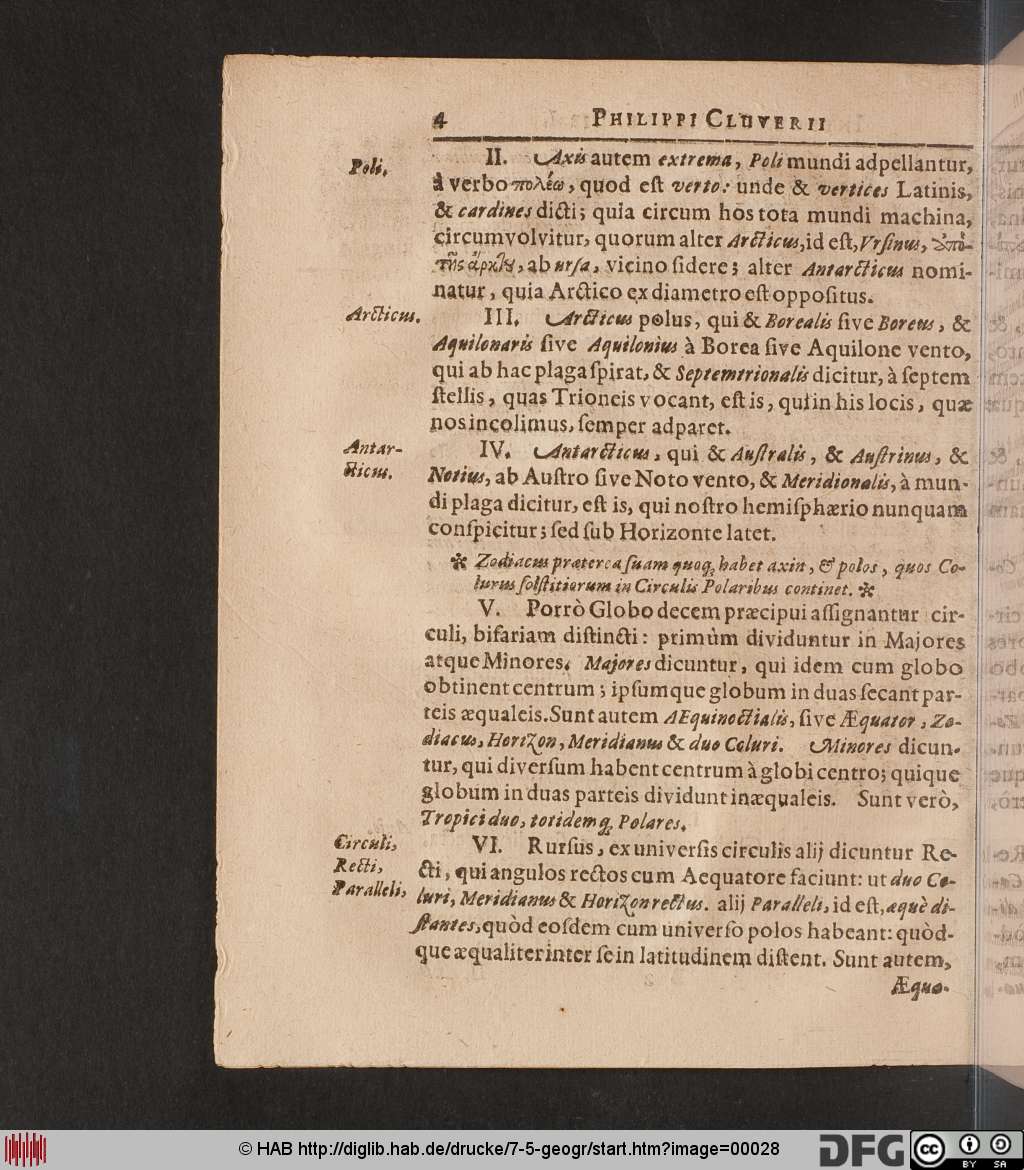 4 PHILIPPI CLUVERII
Poli.
II. Axis autem extrema, Poli mundi adpellantur,
à verbo πολέω, quod eſt verto: unde & vertices Latinis,
& cardines dicti; quia circum hos tota mundi machina,
circumvolvitur, quorum alter Arcticus, id eſt, Vrſinus, ἀπὸ
τῆς ἄρκτȣ, ab urſa, vicino ſidere; alter Antarcticus nomi-
natur, quia Arctico ex diametro eſt oppoſitus.
Arcticus.
III. Arcticus polus, qui & Borealis ſive Boreus, &
Aquilonaris ſive Aquilonius à Borea ſive Aquilone vento,
qui ab hac plaga ſpirat, & Septemtrionalis dicitur, à ſeptem
ſtellis, quas Trioneis vocant, eſt is, qui in his locis, quæ
nos incolimus, ſemper adparet.
Antar-
cticus.
IV. Antarcticus, qui & Auſtralis, & Auſtrinus, &
Notius, ab Auſtro ſive Noto vento, & Meridionalis, à mun-
di plaga dicitur, eſt is, qui noſtro hemiſphærio nunquam
conſpicitur; ſed ſub Horizonte latet.
✻ Zodiacus præterea ſuam quoq; habet axin, & polos, quos Co-
lurus ſolſtitiorum in Circulis Polaribus continet. ✻
V. Porrò Globo decem præcipui aſſignantur cir-
culi, bifariam diſtincti: primùm dividuntur in Majores
atque Minores. Majores dicuntur, qui idem cum globo
obtinent centrum; ipſumque globum in duas ſecant par-
teis æqualeis. Sunt autem AEquinoctialis, ſive Æquator, Zo-
diacus, Horizon, Meridianus & duo Coluri. Minores dicun-
tur, qui diverſum habent centrum à globi centro; quique
globum in duas parteis dividunt inæqualeis. Sunt verò,
Tropici duo, totidemq; Polares.
Circuli,
Recti,
Paralleli,
VI. Rurſus, ex univerſis circulis alij dicuntur Re-
cti, qui angulos rectos cum Aequatore faciunt: ut duo Co-
luri, Meridianus & Horizon rectus. alij Paralleli, id eſt, æquè di-
ſtantes, quòd eoſdem cum univerſo polos habeant: quòd-
que æqualiter inter ſe in latitudinem diſtent. Sunt autem,
Æquo-
© HAB http://diglib.hab.de/drucke/7-5-geogr/start.htm?image=00028
DFG
cc
BY SA